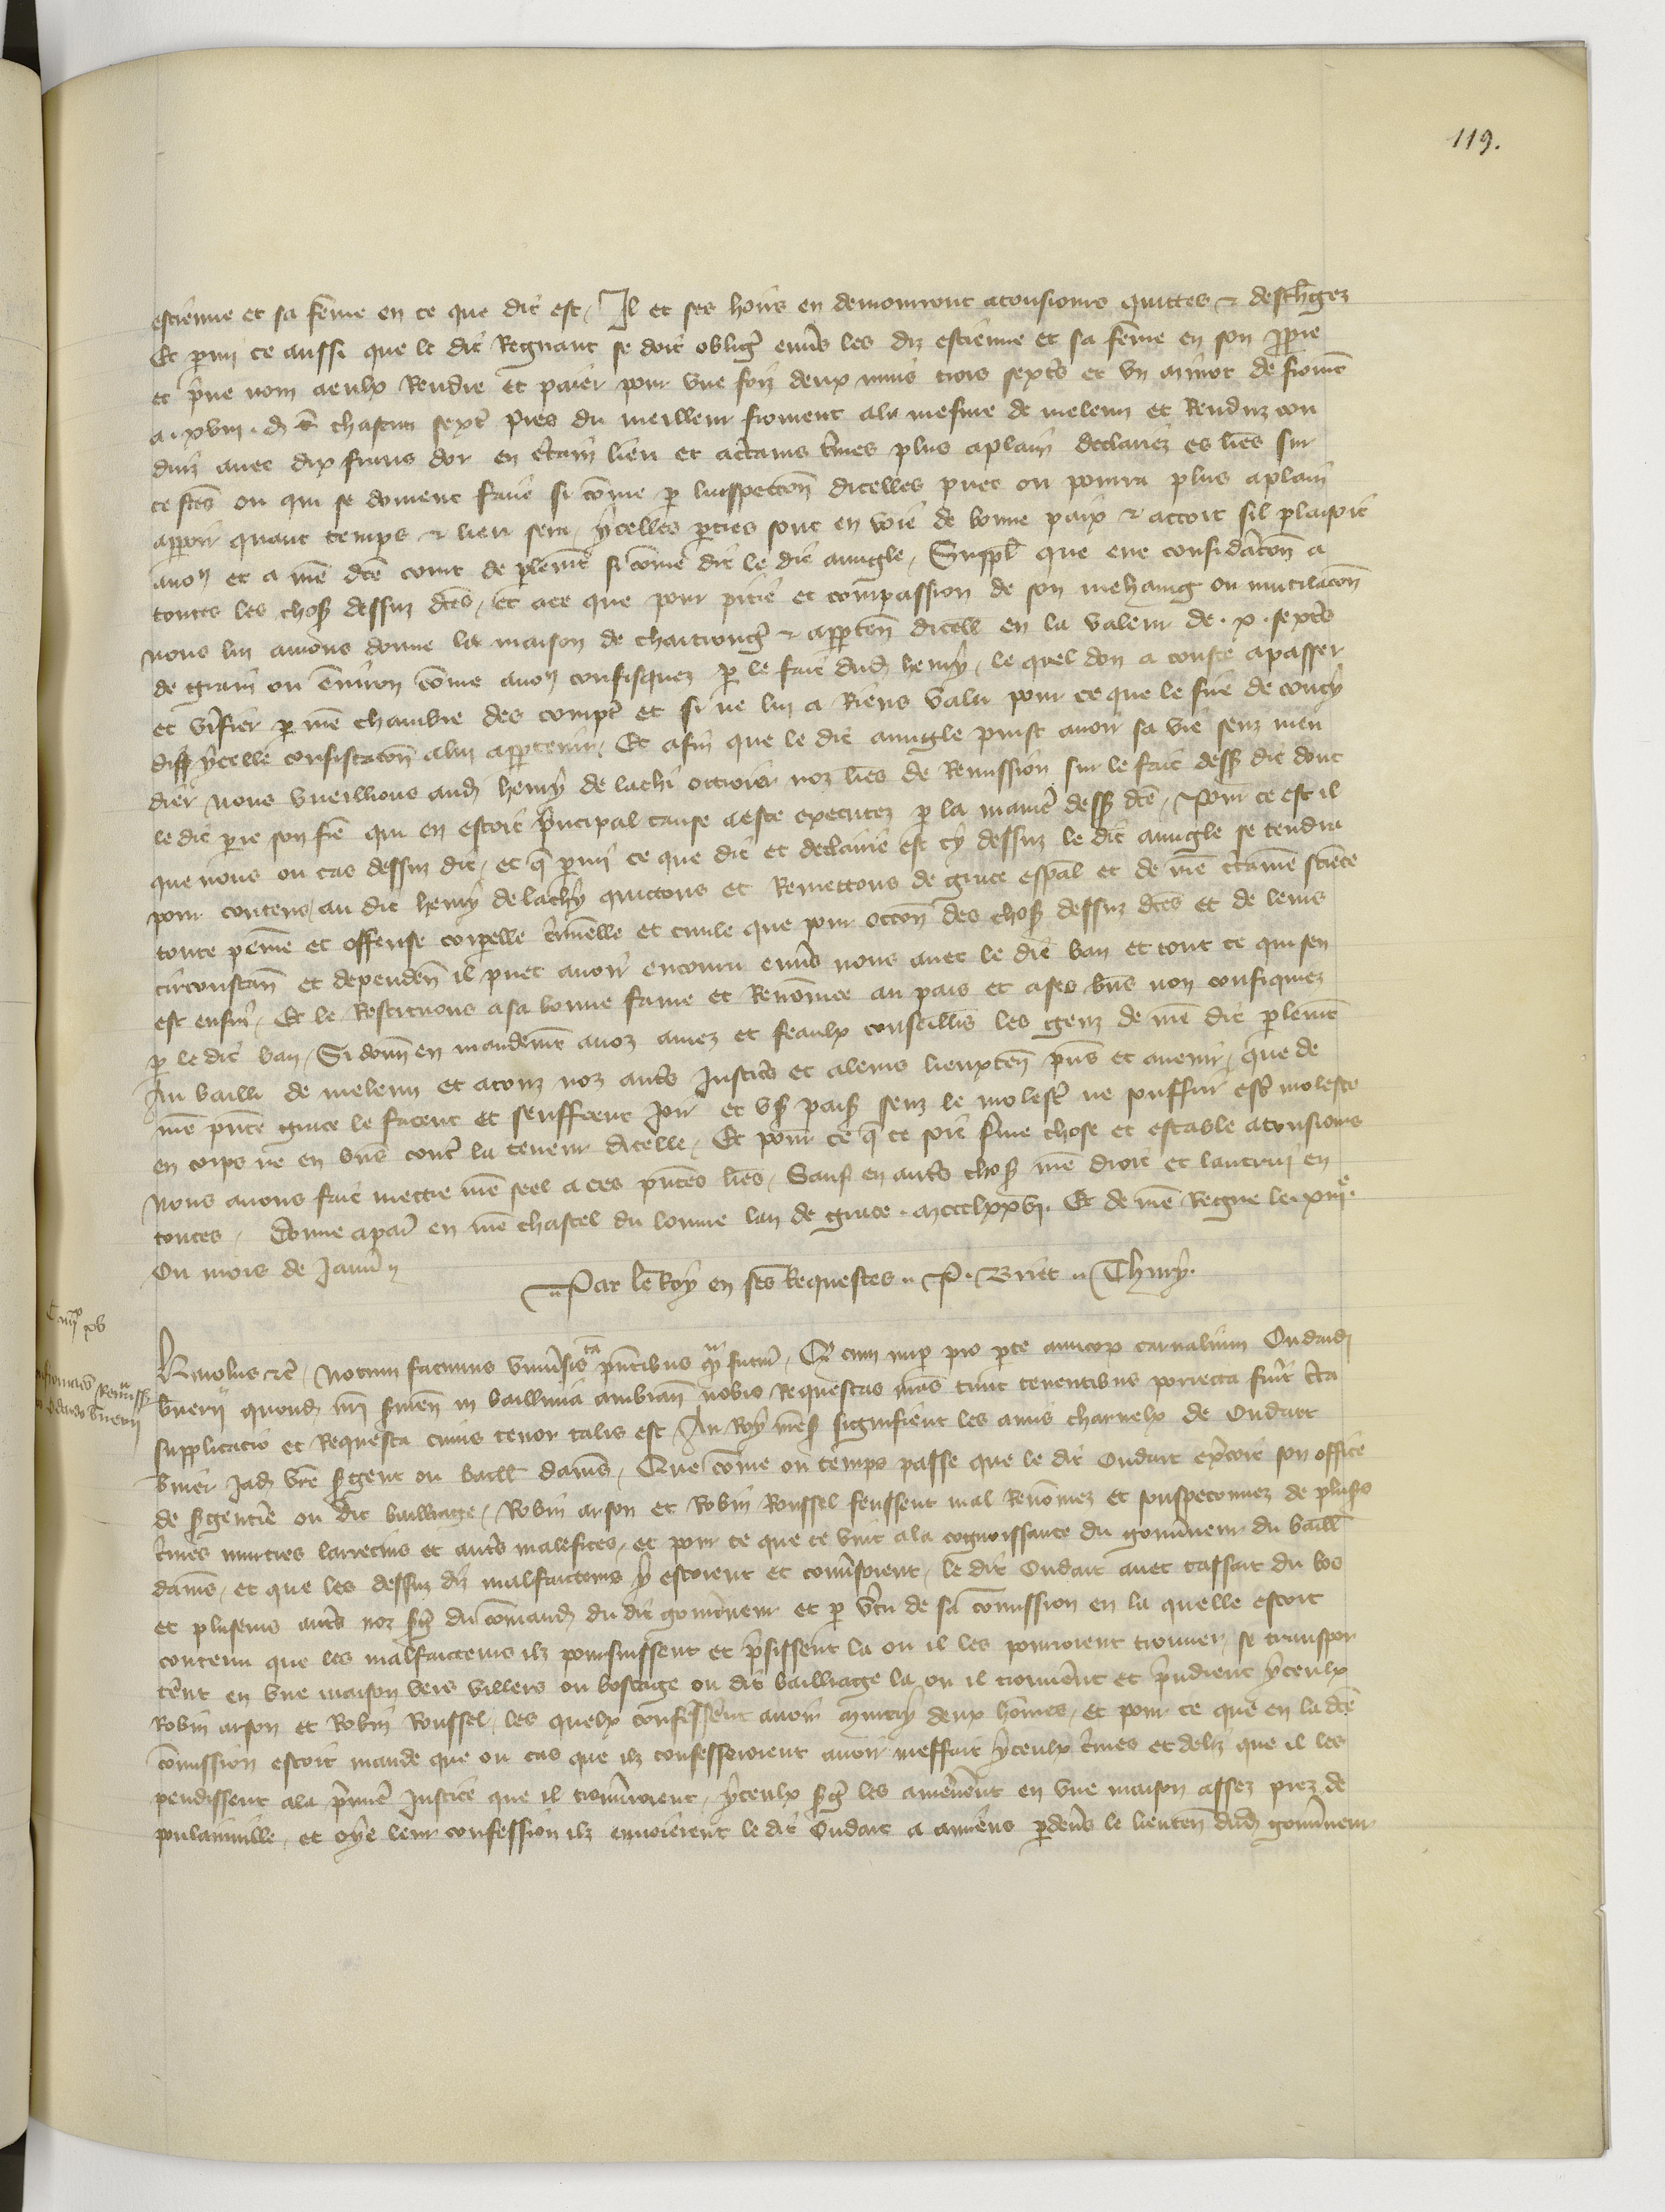 119.
estienne et sa feme en ce que dit est / Il et ses hoirs en demourront atousiours quittes & deschgez
Et pmi ce aussi que le dit Regnaut se doit obligr enuers les diz estienne et sa feme en son ppre
et pue nom aeulx Rendre et paier pour vne foiz deux muis trois sextrs et vn minot de froumt
a . xviii . d chascun sextr pres du meilleur froment ala mesure de meleun et Renduz con
duiz auec dix frans dor en ctain lieu et actains tmes plus aplain declariez es lres sur
ce fces ou qui se doiuent faire si come p linspeccon dicelles puet ou pourra plus aplain
apparoir quant temps & lieu sera / ycelles pties sont en voie de bonne paix & accort sil plaisoit
anoz et a nre dce court de plemt si come dit le dit auugle / Suppl que eue considacon a
toutes les choses dessuz dces / et ace que pour pitie et compassion de son mehaing ou mutilacon
nous lui auions donne la maison de chaitrongr & apptenn dicell en la valeur de . x . sextrs
de grain ou enuiron come anoz confisquez p le fait dud henry / le quel don a couste apasser
et vifier p nre chambre des compts et si ne lui a Riens valu pour ce que le sire de coucy
dist ycelle confiscacon alui apptenir / Et afin que le dit auugle puist auoir sa vie senz men
dier nous vueillions aud henry de lachi ottroier noz lres de Remission sur le fait dess dit dont
le dit pre son fre qui en estoit pncipal cause aeste executez p la manie dess dce / Pour ce est il
que nous ou cas dessuz dit / et q pmi ce que dit et declairie est cy dessuz le dit auugle se tendra
pour contens / au dit henry de lachy quittons et Remettons de grace espal et de nre ctaine science
toute peine et offense corpelle cminelle et ciuile que pour occon des choses dessuz dces et de leurs
circonstann et dependenn il puet auoir encouru enuers nous auec le dit ban et tout ce qui sen
est ensui / Et le Restituons asa bonne fame et Renomee au pais et ases biens non confisquez
p le dit ban / Si donn en mandemt anoz amez et feaulx conseillrs les genz de nre dit plemt
Au bailli de meleun et atouz noz autrs Justicrs et aleurs lieuxtenn pns et auenir / que de
nre pnte grace le facent et seuffrent Joir et vs pais senz le molestr ne souffrir estr moleste
en corps ne en biens contr la teneur dicelle / Et pour ce q ce soit ferme chose et estable atousiours
Nous auons fait mettre nre seel a ces pntes lres / Sauf en autrs choses nre droit et lautrui en
toutes / Donne apais en nre chastel du louure lan de grace . mccclxxvi . Et de nre Regne le . xiiie .
Ou mois de Januier
Par le Roy en ses Requestes . P. Briet . Thury .
Karolus etc / Notum facimus vniuersis tam pntibus qm futuris / Qd cum nup pro pte amicor carnalium Oudardi
bnerij quond nri suien in bailliuia ambian nobis Requestas nras tunc tenentibus porrecta fuit cta
supplicatio et Requesta cuius tenor talis est / Au Roy nres significient les amis charnelx de Oudart
buier Jad vre sgent ou baill damiens / Que come ou temps passe que le dit Oudart excoit son office
de sgenterie ou dit bailliage / Robin arson et Robin Roussel feussent mal Renomez et soupeconnez de plusrs
cmes murtres larrecins et autrs malefices / et pour ce que ce vint ala cognoissance du gouuneur du baill
damiens / et que les dessuz diz malfaicteurs y estoient et conusoient / le dit Oudart auec tassart du bos
et plusieurs autrs noz sgs du comand du dit gouuneur et p vtu de sa comission en la quelle estoit
contenu que les malfaicteurs ilz poursuissent et preissent la ou il les pourroient trouuer / se transpor
terent en vne maison vers villers ou boscage ou dit bailliage la ou il trouuerent et prindrent yceulx
Robin arson et Robin Roussel / les quelx confesserent auoir murtry deux homes / et pour ce que en la dce
comission estoit mande que ou cas que ilz confesseroient auoir meffait yceulx cmes et deliz que il les
pendissent ala pmiere Justice que il trouuroient / yceulx sgs les amenerent en vne maison assez prez de
poulainuille / et oye leur confession ilz enuoierent le dit Oudart a amiens pdeuers le lieuten dud gouuneur